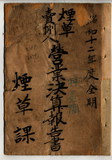 昭和十二年度全期
煙草
賣捌
營業決算報告書
煙草課